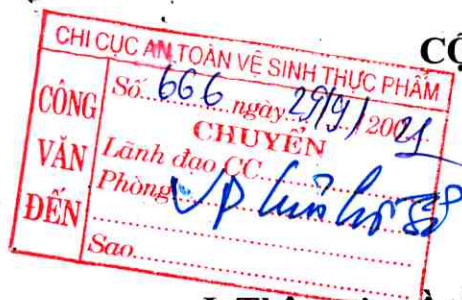 CỘ
CHI CỤC AN TOÀN VỆ SINH THỰC PHẨM
CÔNG VĂN ĐẾN
Số 666 ngày 29/9/2021
CHUYỂN
Lãnh đạo CC
Phòng VP
Sao